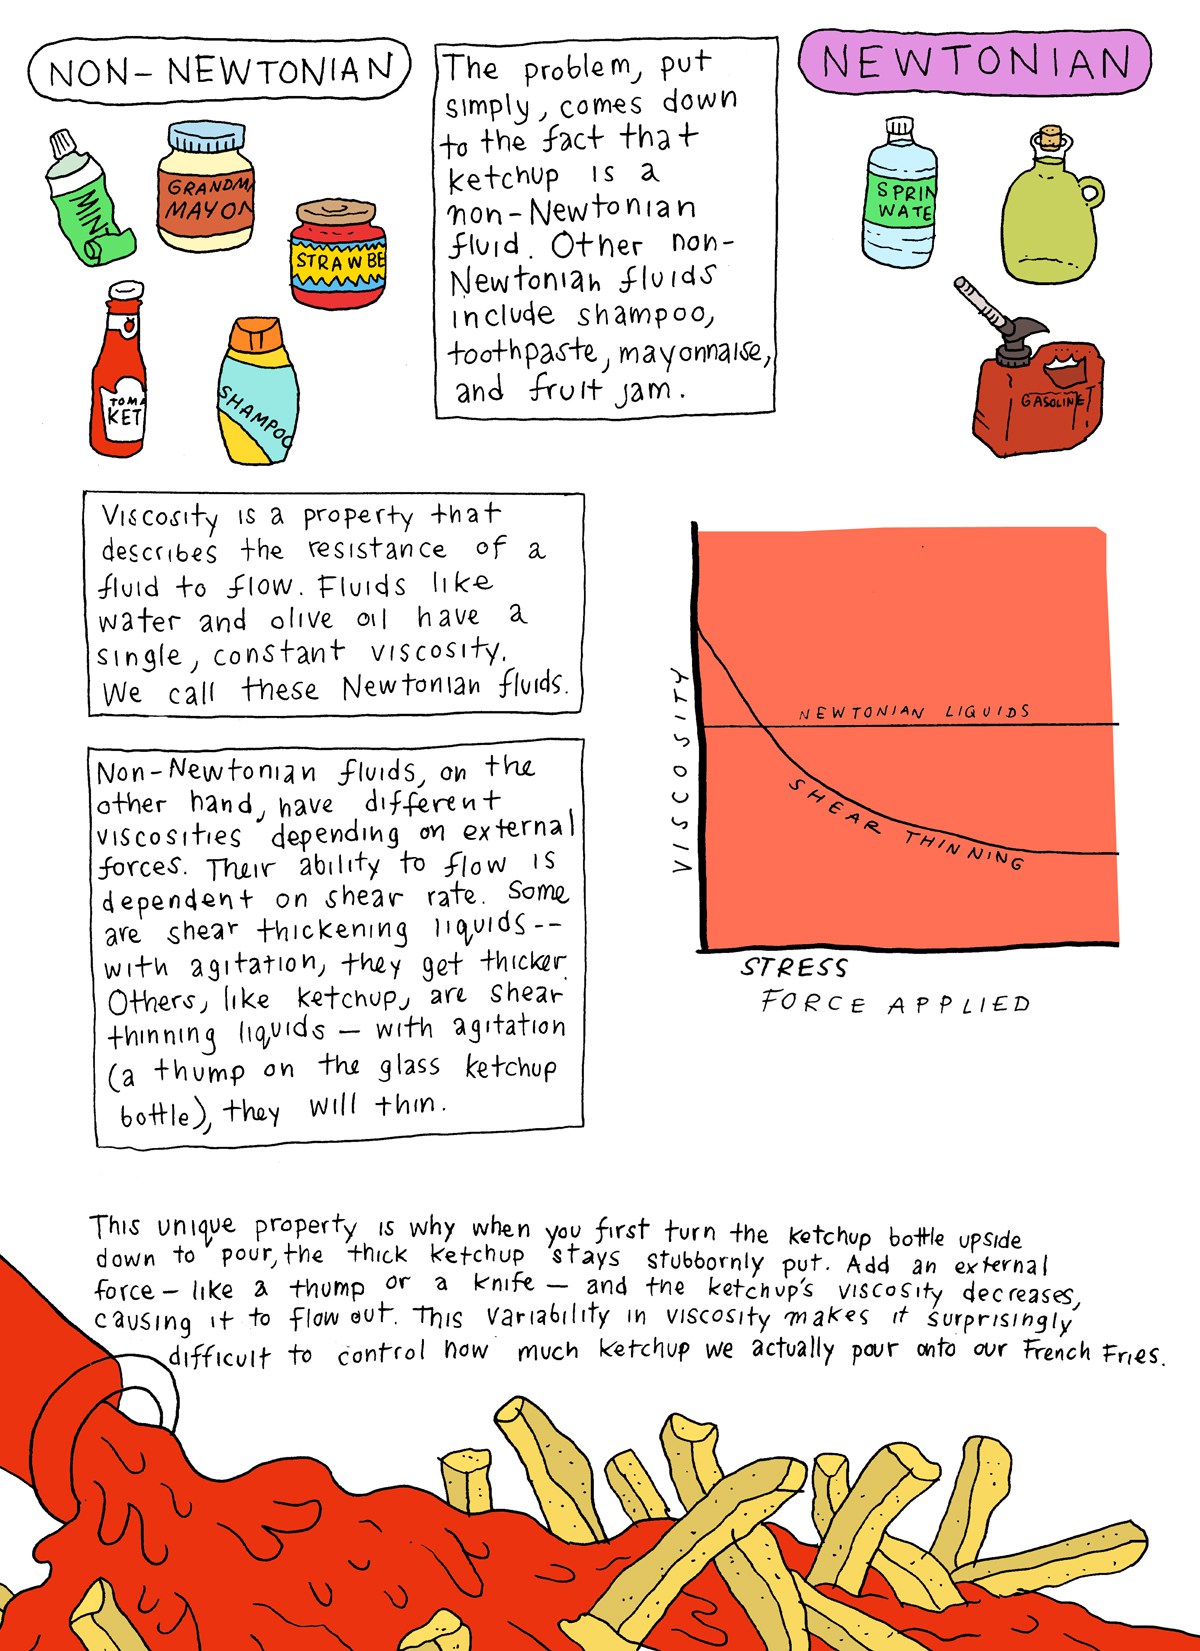 NON-NEWTONIAN
MINT
GRANDMA
MAYON
STRAWBE
TOMA
KET
SHAMPOO
The problem, put
simply, comes down
to the fact that
ketchup is a
non-Newtonian
fluid. Other non-
Newtonian fluids
include shampoo,
toothpaste, mayonnaise,
and fruit jam.
NEWTONIAN
SPRIN
WATE
GASOLINE
Viscosity is a property that
describes the resistance of a
fluid to flow. Fluids like
water and olive oil have a
single, constant viscosity.
We call these Newtonian fluids.
Non-Newtonian fluids, on the
other hand, have different
viscosities depending on external
forces. Their ability to flow is
dependent on shear rate. Some
are shear thickening liquids--
with agitation, they get thicker.
Others, like ketchup, are shear
thinning liquids — with agitation
(a thump on the glass ketchup
bottle), they will thin.
VISCOSITY
NEWTONIAN LIQUIDS
SHEAR THINNING
STRESS
FORCE APPLIED
This unique property is why when you first turn the ketchup bottle upside
down to pour, the thick ketchup stays stubbornly put. Add an external
force – like a thump or a knife – and the ketchup's viscosity decreases,
causing it to flow out. This variability in viscosity makes it surprisingly
difficult to control how much ketchup we actually pour onto our French Fries.